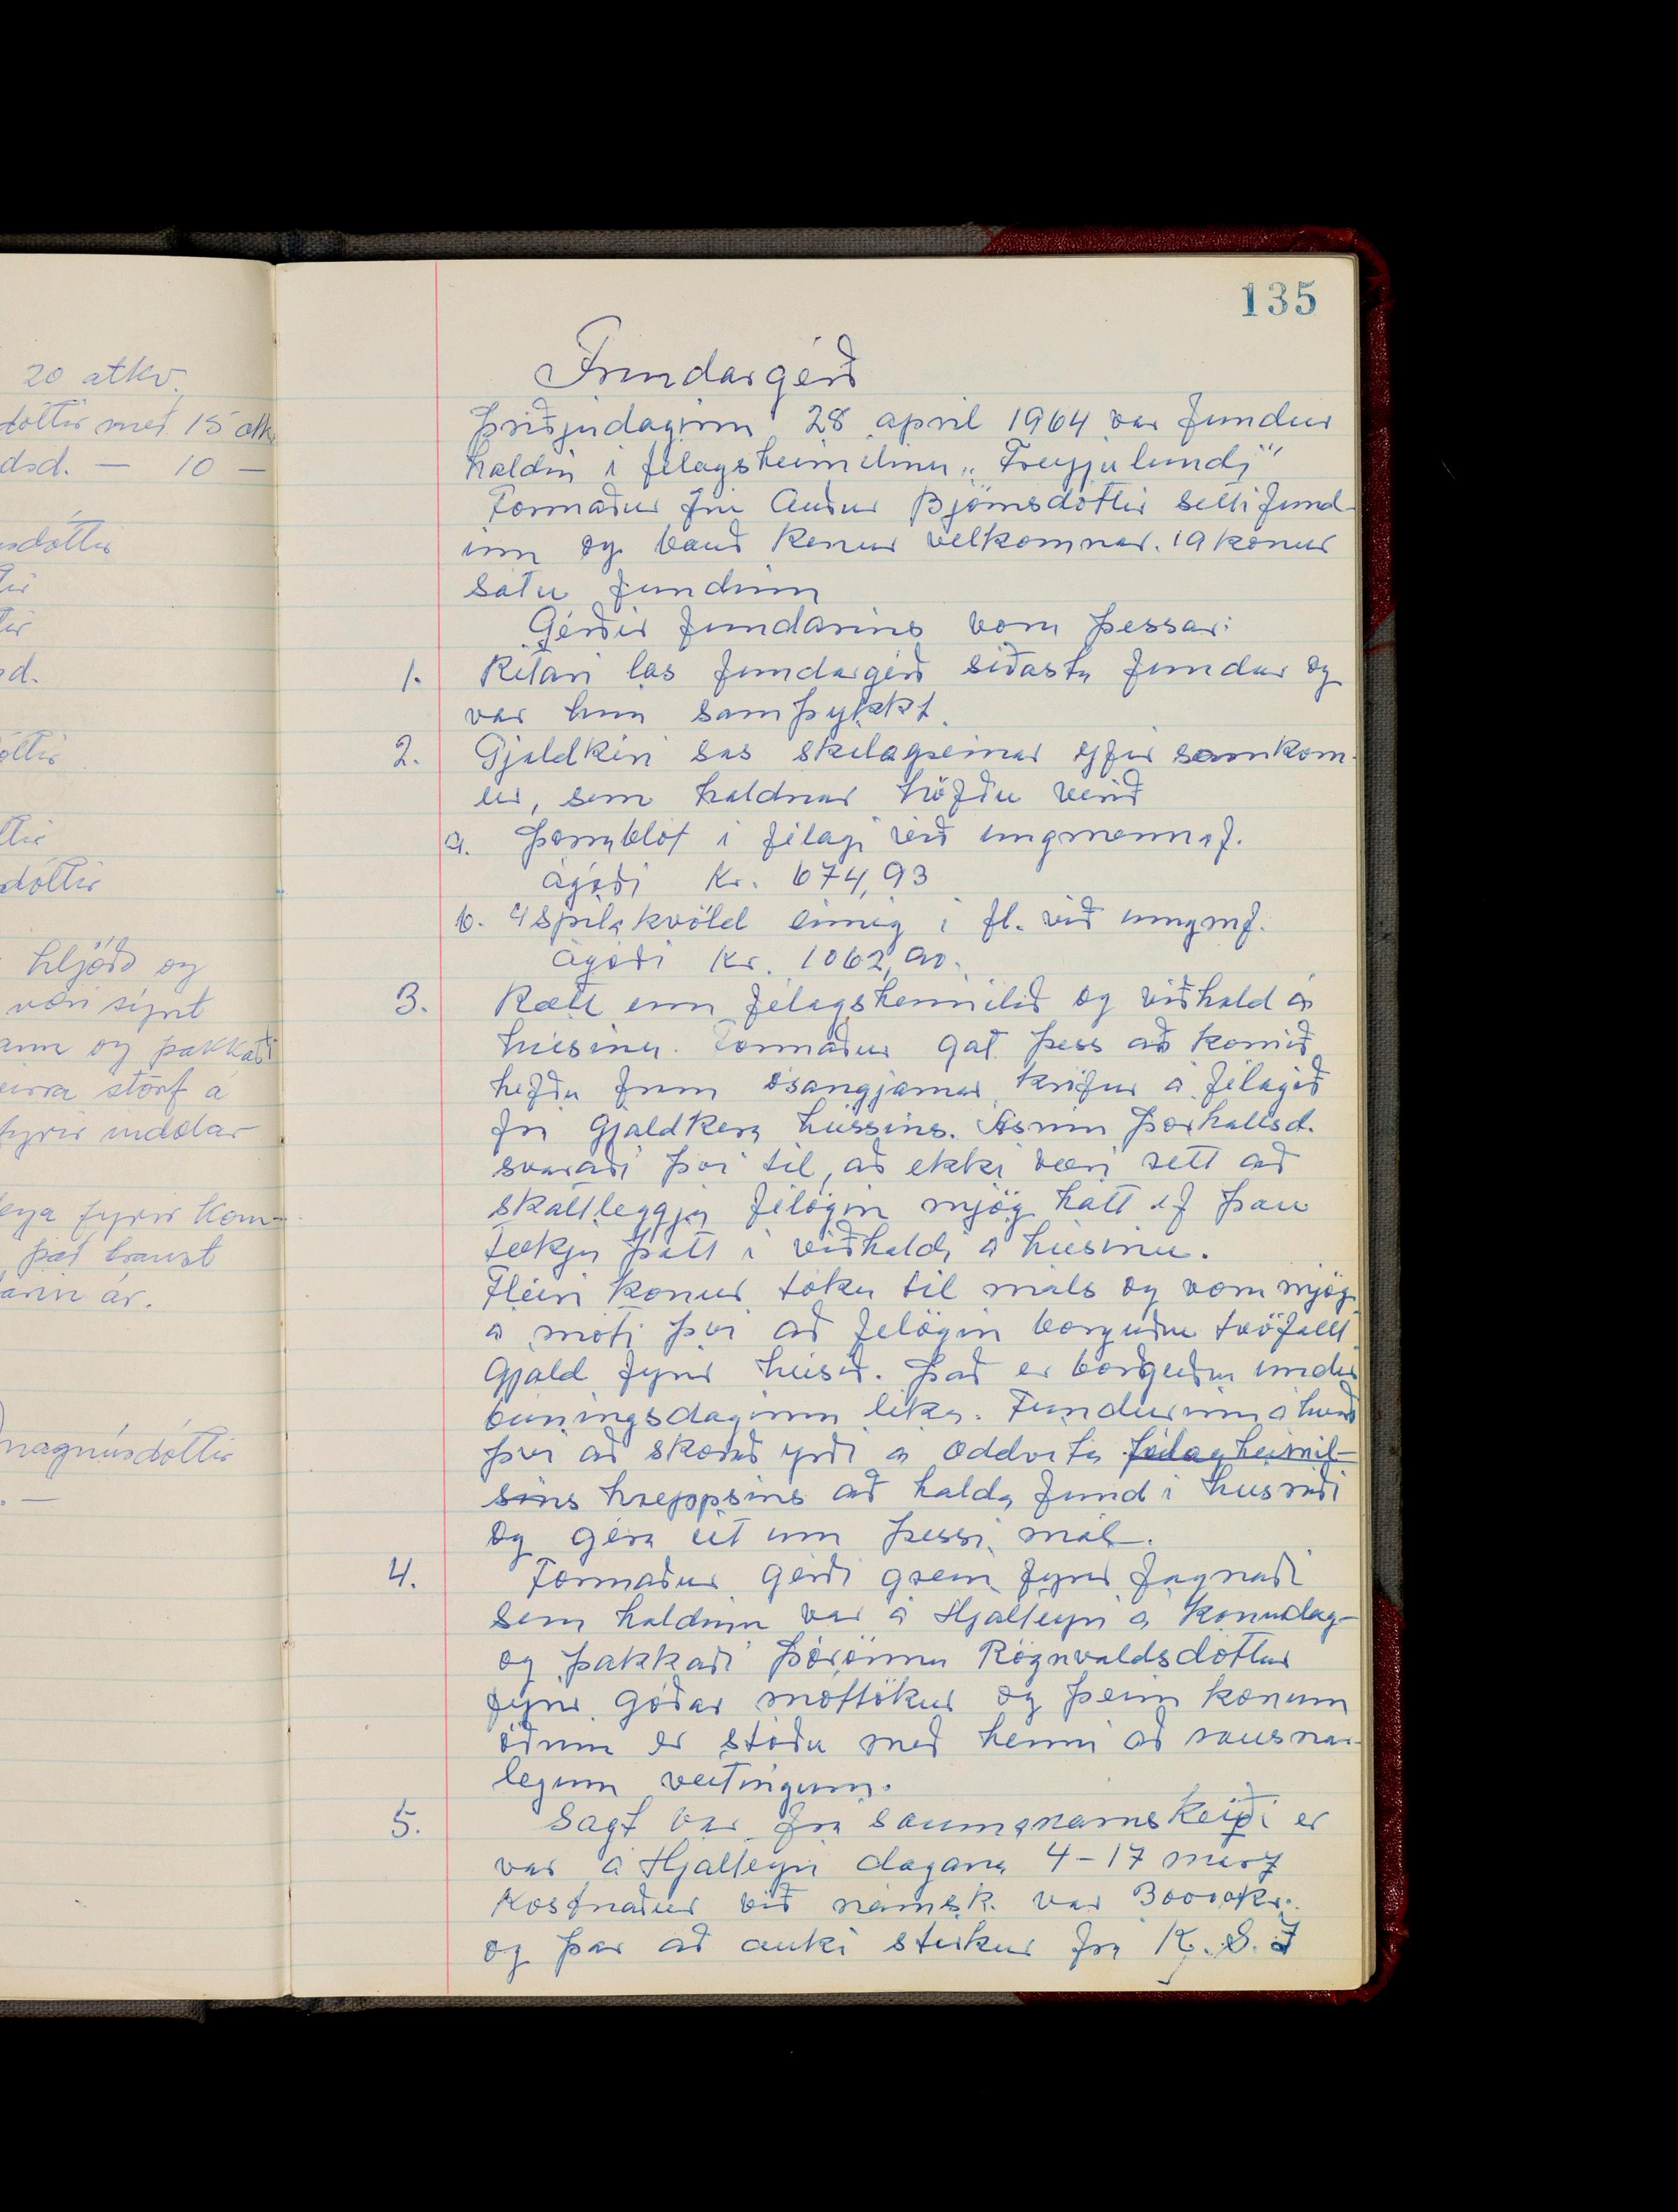 135
20 atkv.
dóttir með 15 atk.
dsd. — 10 —
sdóttir
tir
tir
sd.
óttir
ttir
dóttir
hljóðs og
væri sýnt
ann og þakkaði
eirra störf á
fyrir indælar
eya fyrir kom-
það braust
arin ár.
magnúsdóttir
. —
Fundargérð
Þriðjudaginn 28 april 1964 var fundur
haldin i félagsheimilinu „Freyjulundi"
Formaður frú Auður Björnsdóttir setti fund-
inn og bauð konur velkomnar. 19 konur
sátu fundinn
Gérðir fundarins voru þessar:
1. Ritari las fundargérð síðasta fundar og
var hun samþykkt.
2. Gjaldkéri las skilagreinar yfir samkom-
ur, sem haldnar höfðu verið
a. Þorrablót i félagi við ungmennaf.
ágóði Kr. 674,93
b. 4 spilakvöld einnig i fl. við ungmf.
Ágóði Kr. 1062,90.
3. Rætt um félagsheimilið og viðhald á
húsinu. Formaður gat þess að komið
hefðu fram ósangjarnar kröfur á félagið
frá gjaldkera hússins. Ásrún Þórhallsd.
svaraði því til, að ekki væri rétt að
skattleggja félögin mjög hátt ef þau
tækju þátt í viðhaldi á húsinu.
Fleiri konur tóku til máls og voru mjög
á móti því að felögin borguðu tvöfallt
gjald fyrir húsið. Það er borguðu undir
búningsdaginn líka. Fundurinn ákvað
því að skorað yrði á oddvita félagheimil-
sins hreppsins að halda fund i húsráði
og géra út um þessi mál.
4. Formaður gérði grein fyrir fagnaði
sem haldinn var á Hjalteyri á konudag-
og þakkaði Þórönnu Rögnvaldsdóttur
fyrir góðar móttökur og þeim konum
öðrum er stóðu með henni að rausnar-
legum veitingum.
5. Sagt var frá saumanámskeiði er
var á Hjalteyri dagana 4-17 marz
Kostnaður við námsk. var 3000 kr.
og þar að auki styrkur frá K. S. Í